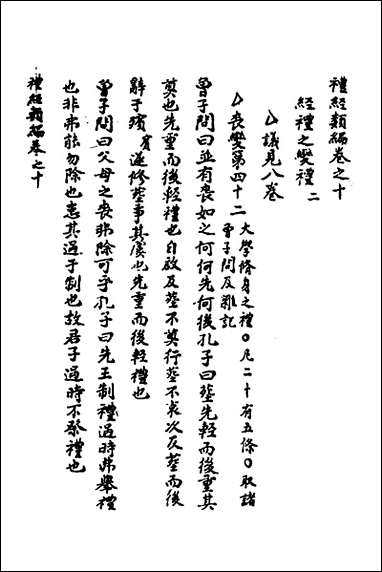 禮經類編卷之十
經禮之變禮二
△議見八卷
△喪變第四十二 大學脩身之禮○凡二十有五條○取諸
曾子問及雜記
曾子問曰並有喪如之何何先何後孔子曰塟先輕而後重其
奠也先重而後輕禮也自啟及塟不奠行塟不哀次反塟而後
辭于殯賓遂修塟事其虞也先重而後輕禮也
曾子問曰父母之喪弗除可乎孔子曰先王制禮過時弗舉禮
也非弗能勿除也患其過于制也故君子過時不祭禮也
禮經類編卷之十